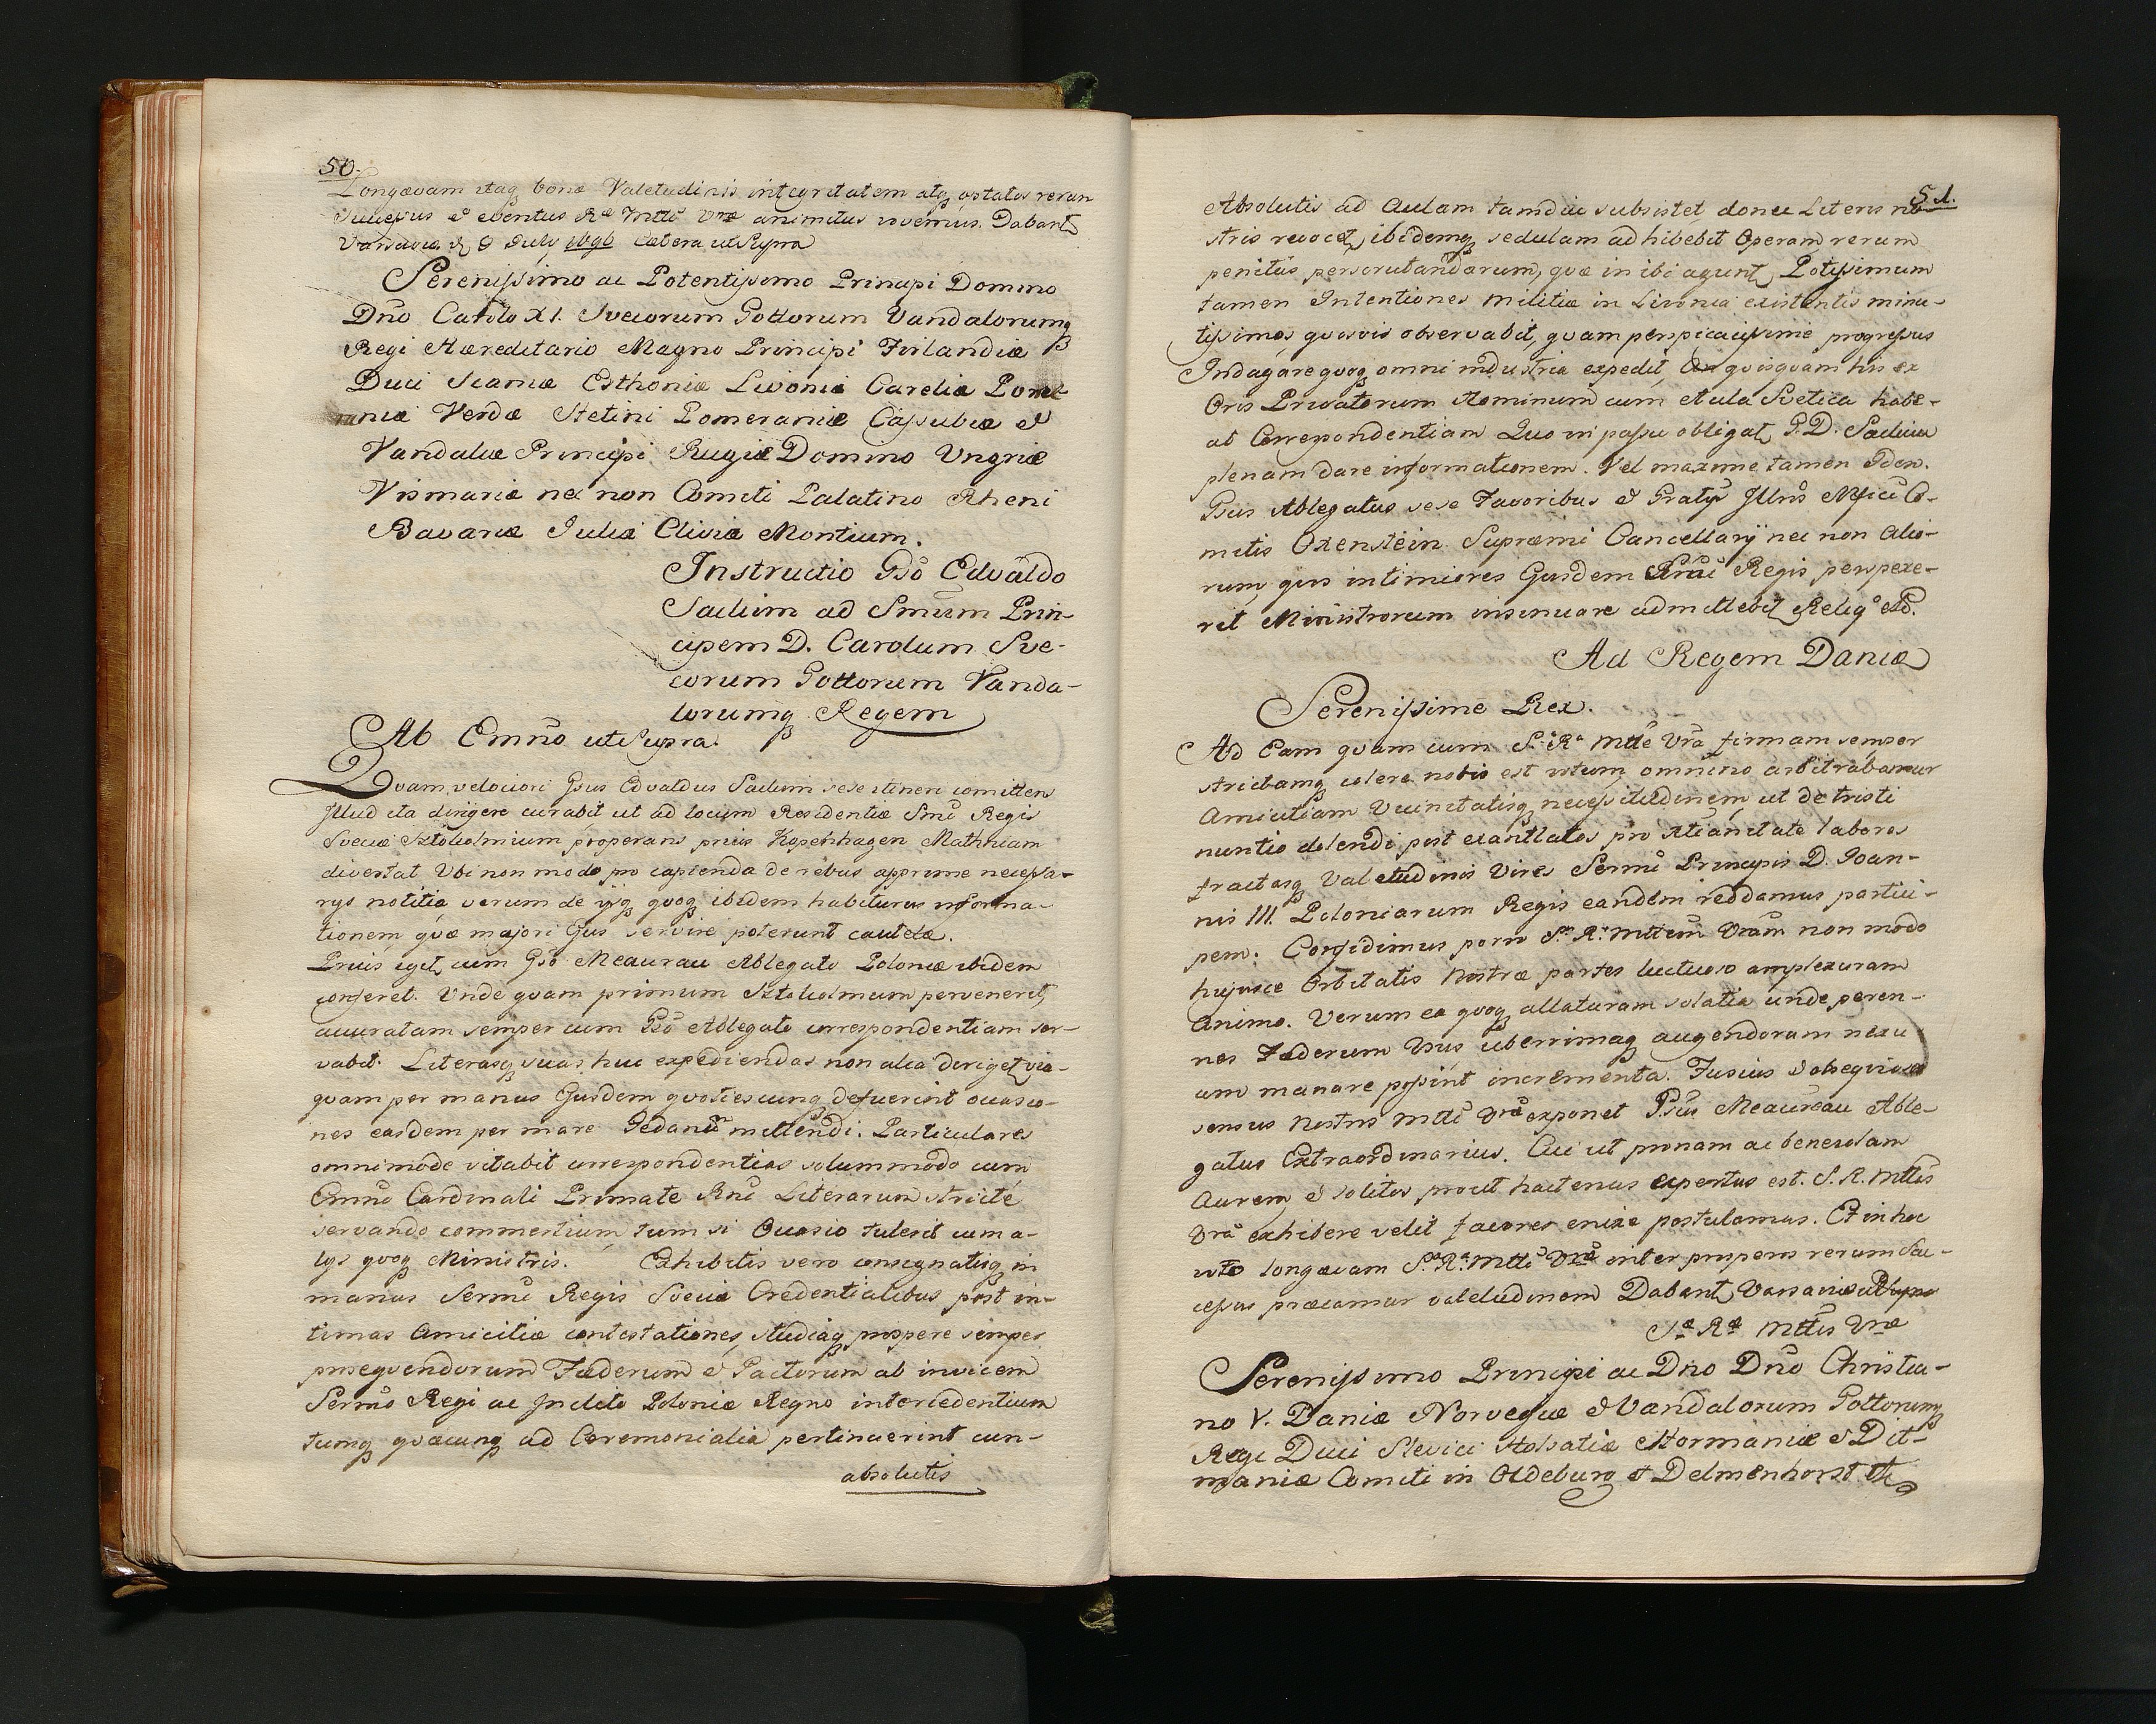 50.
Longævam itaq bonæ Valetudinis integritatem atq optatos rerum
Successus et eventus Ræ Mtti Vræ animitus vovemus. Dabant
Varsaviæ d 9 July 1696 Cætera ut Supra
Serenissimo ac Potentissimo Principi Domino
Dno Carolo XI. Svecorum Gottorum Vandalorumq
Regi Hæreditario Magno Principi Finlandiæ
Duci Scaniæ Esthoniæ Livoniæ Careliæ Pome
raniæ Verdæ Stetini Pomeraniæ Cassubiæ et
Vandaliæ Principi Rugiæ Domino Ungriæ
Vismariæ nec non Comiti Palatino Rheni
Bavariæ Juliæ Cliviæ Montium.
Instructio Gso Edvaldo
Saclum ad Smum Prin-
cipem D. Carolum Sve-
corum Gottorum Vanda-
lorumq Regem
Ab Emno ut Supra.
Quam velociori Gsus Edvaldus Saclum sese itineri comittens
Illud ita dirigere curabit ut ad locum Residentiæ Smi Regis
Sveciæ Sztolcolmium properans prius Kopenhagen Mathniam
divertat Ubi non modo pro capienda de rebus apprime necessa-
rys notitia verum de ysq quoq ibidem habiturus informa-
tionem quæ majori Ejus servire poterunt cautelæ.
Prius iget cum Gso Meaurau Ablegato Poloniæ ibidem
conferet. Unde quam primum Sztolcolmum pervenerit,
accuratam semper cum Gso Ablegato correspondentiam ser-
vabit. Literasq suas huc expediendas non alia diriget via-
quam per manus Ejusdem quotiescunq defuerint occasio-
nes easdem per mare Gedanu mittendi. Particulares
omnimode vitabit correspondentias solummodo cum
Emno Cardinali Primate Rni Literarum stricte
servando commertium tum si Occasio tulerit cum a-
lys quoq Ministris. Exhibitis vero consignatisq in
manus Sermi Regis Sveciæ Credentialibus post in-
timas Amicitiæ contestationes, studiaq prospere semper
prosequendorum Fæderum et Pactorum ab invicem
Sermo Regi ac Inclito Poloniæ Regno intercedentium
tumq quæcunq ad Ceremonialia pertinuerint cun-
absolutis
51.
Absolutis ad Aulam tamdiu subsistet, donec Literis no
stris revocet, ibidemq sedulam adhibebit Operam rerum
penitus perscrutandarum, quæ in ibi agunt, Potissimum
tamen Intentiones militiæ in Livonia existentis minu-
tissimos quosvis observabit, quam perspicacissime progressus
Indagare quoq omni industria expedit, An quisquam his ex
Oris Privatorum Hominum cum Aula Svetica habe-
at Correspondentiam Quo in passu obligat, G. D. Saclum
plenam dare informationem. Vel maxime tamen Iden.
Gsus Ablegatus sese Favoribus et Gratys Illris Mfici Co-
mitis Oxenstein Supræmi Cancellarÿ nec non Alio-
rum, quos intimiores Ejusdem Srmi Regis perspexe-
rit Ministrorum insinuare admittebit, Reliq etc.
Ad Regem Daniæ
Serenissime Rex.
Ad Eam quam cum S. Ra Mtte Vra firmam semper
strictamq colere nobis est votum, omnino arbitrabamur
Amicitiam Vicinitatisq necessitudinem, ut de tristi
nuntio dolendi post exantlatos pro Xtianitate labores
fractasq Valetudinis Vires Sermi Principis D. Joan-
nis III. Poloniarum Regis eandem reddamus partici-
pem. Confidimus porro S. R. Mttem Vram non modo
hujusce Orbitatis Nostræ partes luctuoso amplexuram
Animo. Verum ea quoq allaturam solatia unde peren-
nes Fæderum Usus uberrimaq augendorum nexu
um manare possint incrementa. Fusius
sensus Nostros Mtti Vræ exponet Gsus Meaureau Able-
gatus Extraordinarius. Cui ut pronam ac benevolam
Aurem, et solitos prout hactenus expertus est. S. R. Mttis
Vra exhibere velit favores enixe postulamus. Et in hoc
voto longævam S. R. Mtti Vræ inter prosperos rerum Suc-
cessus præcamur valetudinem Dabant, Varsaviæ ut Supra
Sæ Ræ Mttis Vræ
Serenissimo Principi ac Dno Dno Christia-
no V. Daniæ Norvegiæ et Vandalorum Gottorumq
Regi Duci Slevici Holsatiæ Stormaniæ et Dit-
maniæ Comiti in Oldeburg et Delmenhorst etc